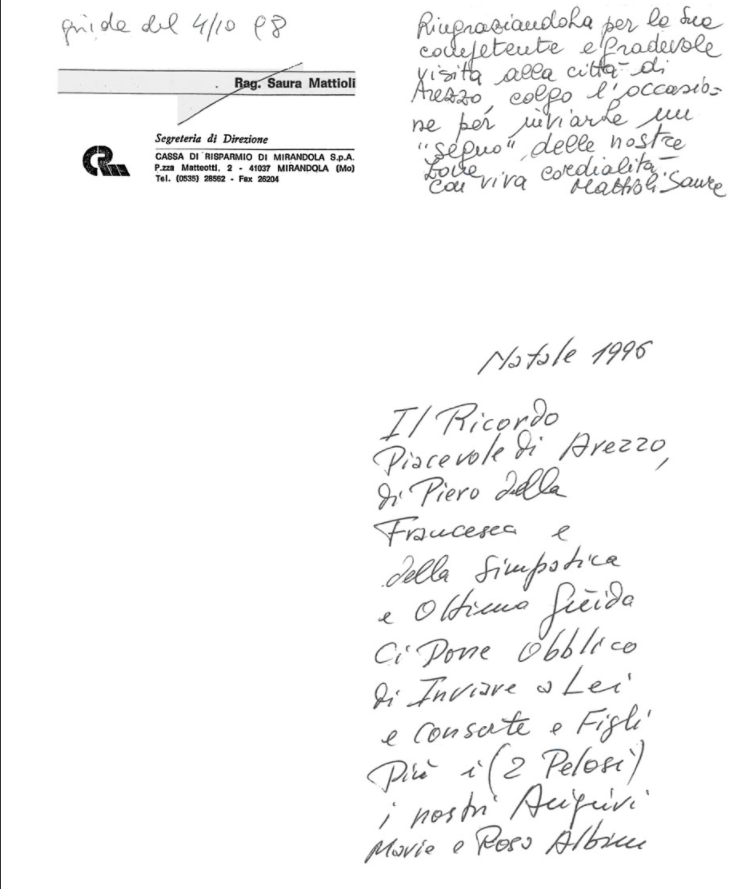 guida del 4/10 98
Rag. Saura Mattioli
Segreteria di Direzione
CASSA DI RISPARMIO DI MIRANDOLA S.p.A.
P.zza Matteotti, 2 - 41037 MIRANDOLA (Mo)
Tel. (0535) 28562 - Fax 26204
RingraziandoLa per la Sua
competente e gradevole
visita alla città di
Arezzo, colgo l'occasio=
ne per inviarLe un
"segno" delle nostre
zone
Con viva cordialità.
Mattioli Saura
Natale 1996
Il Ricordo
Piacevole di Arezzo,
di Piero della
Francesca e
della Simpatica
e Ottima Guida
Ci Pone Obblico
di Inviare a Lei
e Consorte e Figli
Più i (2 Pelosi)
i nostri Auguri
e Rosa